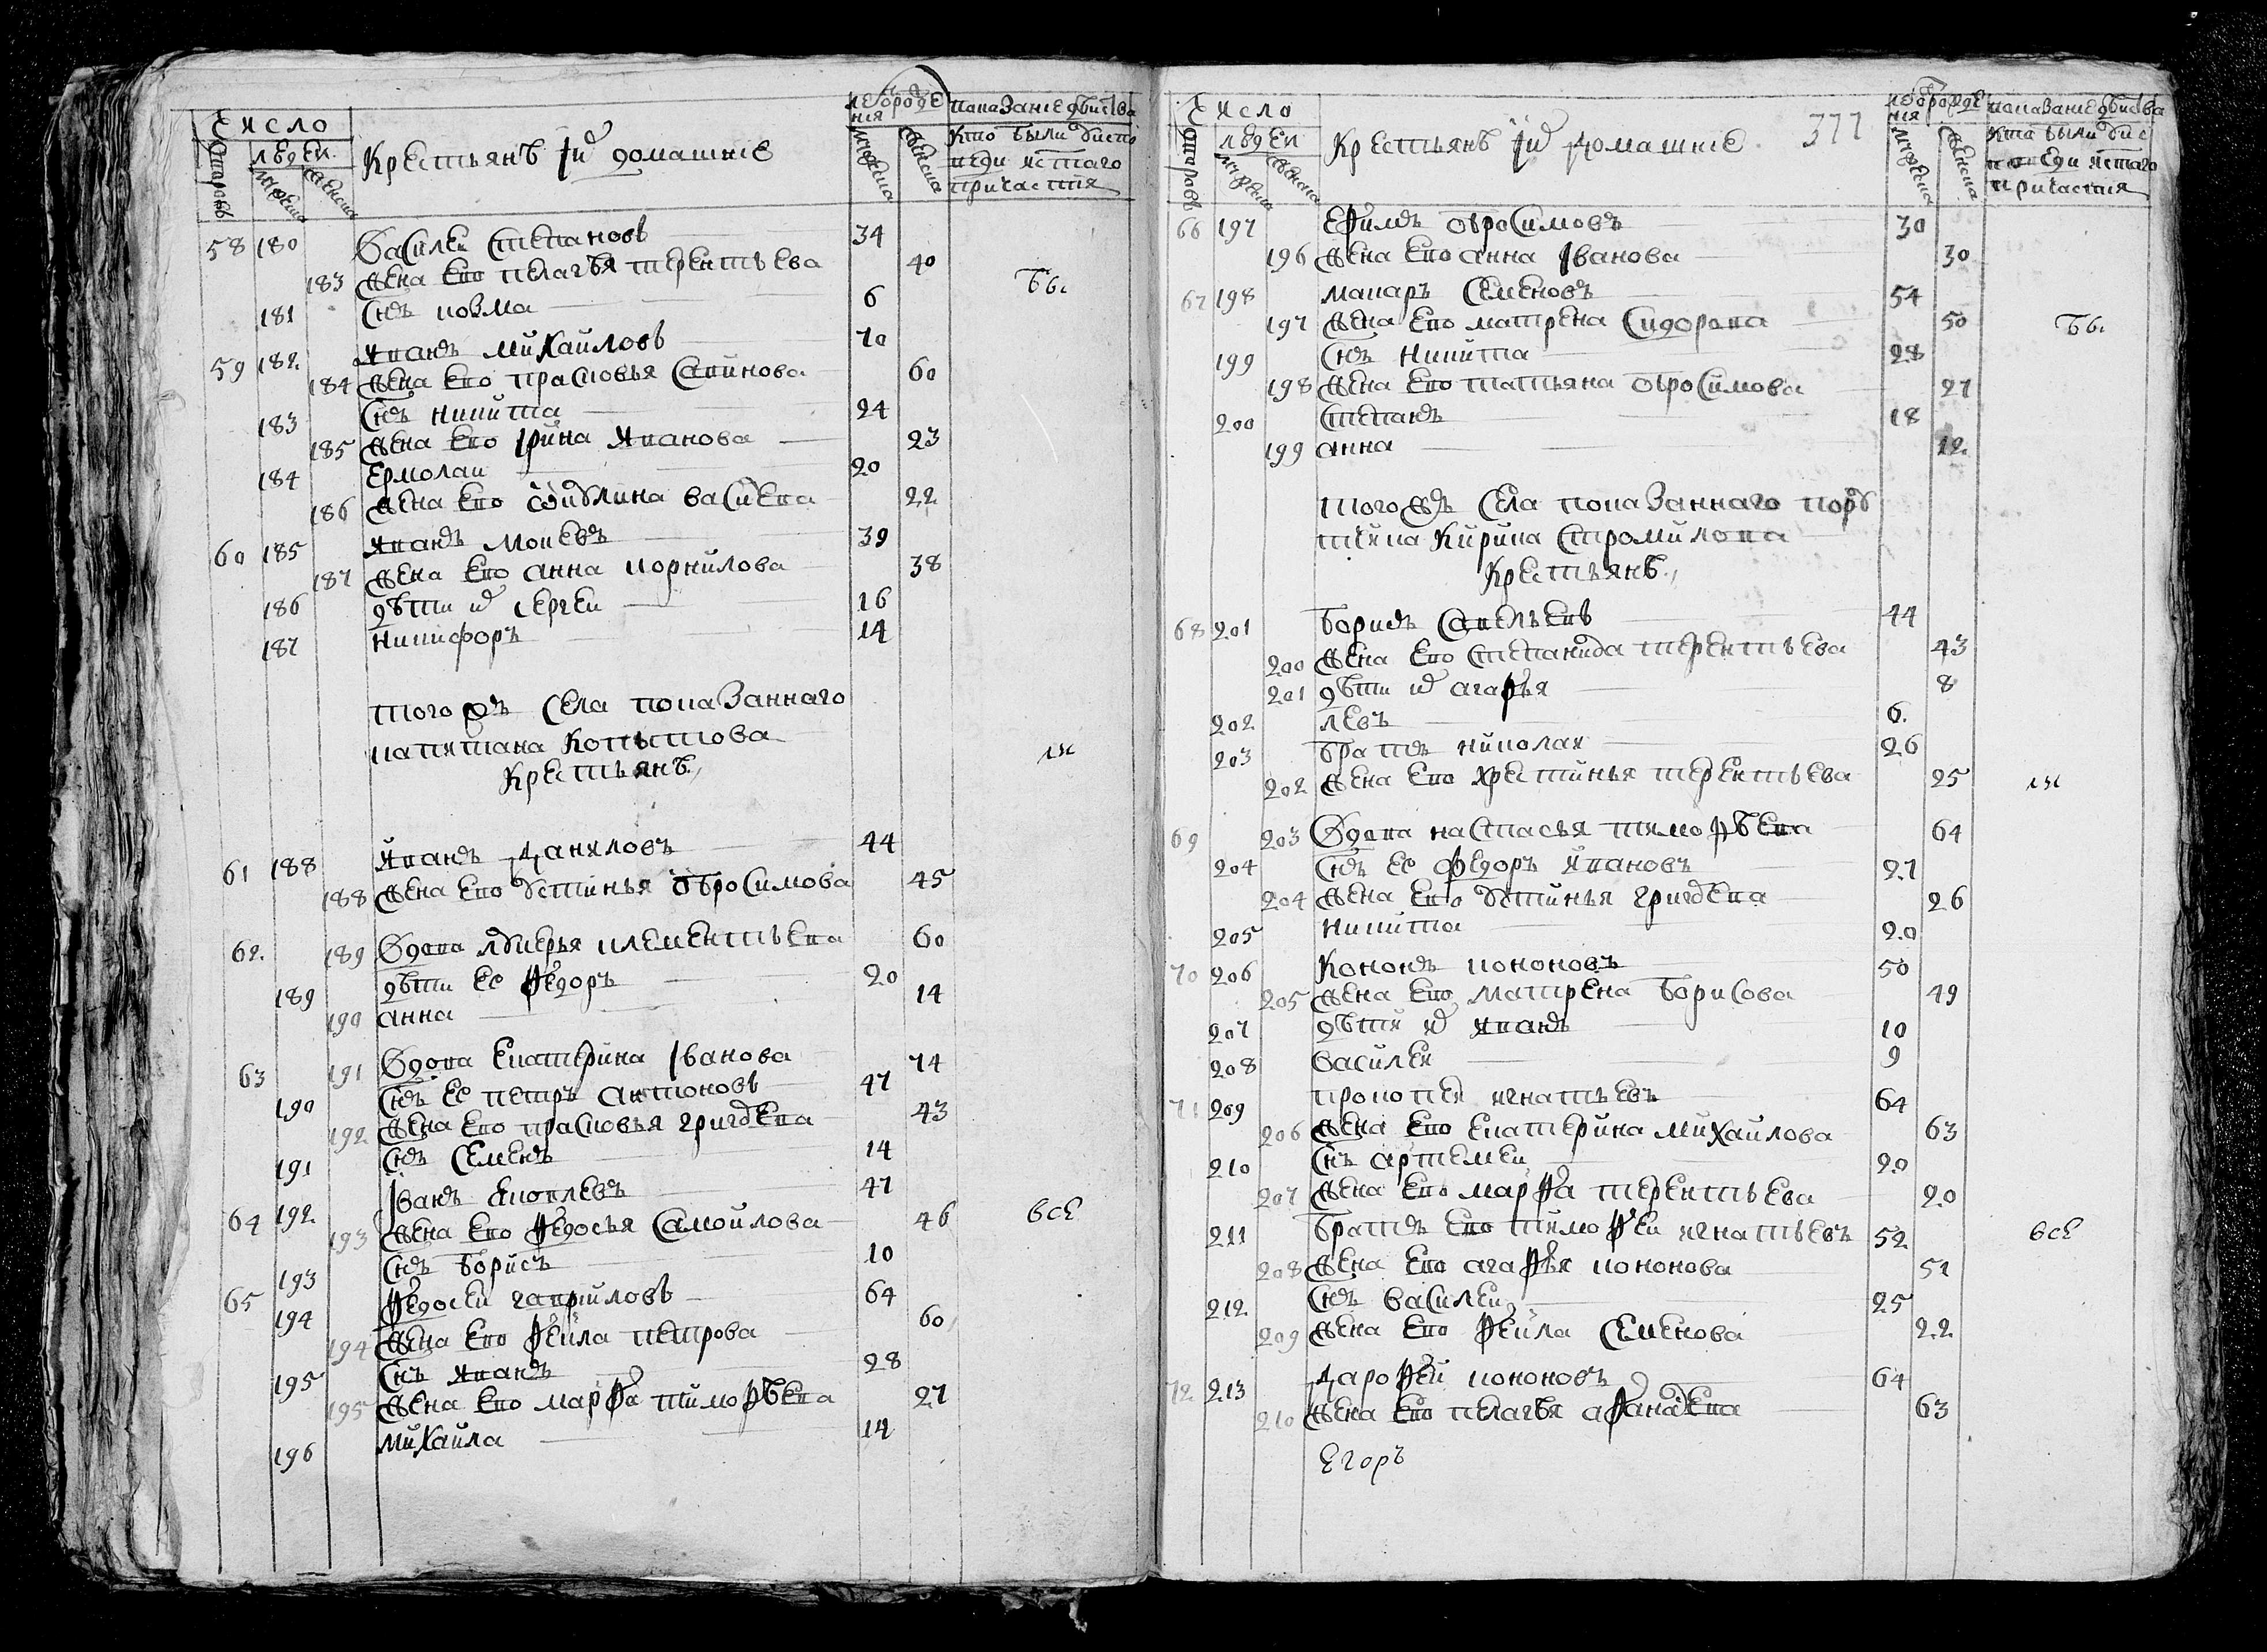 Число
лѣт от рожде
ния
показание дѣиства
дворовъ
людеи
мужеска
женска
Крестьянѣ и их домашние
мужеска
женска
Кто были у испо
веди и стаго
причастия
58 180 Василеи Степановъ 34
183 жена ево пелагѣя терентьева 40
181 снъ козма 6
бы
59 182 Иванъ михаиловъ 70
184 жена ево прасковья Савинова 60
183 снъ никита 24
185 жена ево Ирина Иванова 23
184 ермолаи 20
186 жена ево акулина василева 22
60 185 Иванъ мокевъ 39
187 жена ево анна корнилова 38
186 дѣти их сергеи 16
187 никифоръ 14
того жъ Села показаннаго
капитана Копытова
Крестьянѣ
ли
61 188 Иванъ Даниловъ 44
188 жена ево устинья обросимова 45
62 189 Вдова лукерья клементьева 60
189 дѣти ее федоръ 20
190 анна 14
63 191 Вдова Екатерина Иванова 74
190 снъ ее петръ антоновъ 47
192 жена ево прасковья григорева 43
191 снъ Семенъ 14
64 192 Иванъ яковлевъ 47
193 жена ево федосья Самоилова 46
все
193 снъ борисъ 10
65 194 федосеи гавриловъ 64
194 жена ево фекла петрова 60
195 снъ Иванъ 28
195 жена ево марфа тимофѣева 27
196 михаила 14
Число
лѣт от рожде
ния
показание дѣиства
дворовъ
людеи
мужеска
женска
Крестьянѣ и их домашние
377
мужеска
женска
Кто были у ис
поведи и стаго
причастия
66 197 ефимъ обросимовъ 30
196 жена ево анна Иванова 30
67 198 макаръ Семеновъ 54
197 жена ево матрена Сидорова 50
бы
199 снъ никита 28
198 жена ево татьяна обросимова 27
200 степанъ 18
199 анна 12
того жъ Села показаннаго пору
тчика Кирила Стромилова
Крестьянѣ
68 201 борисъ Савельевъ 44
200 жена ево степанида терентьева 43
201 дѣти их агафья 8
202 левъ 6
203 братъ николаи 26
202 жена ево христинья терентьева 25
ли
69 203 Вдова настасья тимофѣева 64
204 снъ ее федоръ Ивановъ 27
204 жена ево устинья григорева 26
205 никита 20
70 206 Кононъ кононовъ 50
205 жена ево матрена борисова 49
207 дѣти их Иванъ 10
208 василеи 9
71 209 прокопеи игнатьевъ 64
206 жена ево екатерина михаилова 63
210 снъ артемеи 20
207 жена ево марфа терентьева 20
211 братъ ево тимофеи игнатьевъ 52
208 жена ево агафья кононова 51
все
212 снъ василеи 25
209 жена ево фекла Семенова 22
72 213 Дарофеи кононовъ 64
210 жена ево пелагѣя афанасева 63
Егоръ